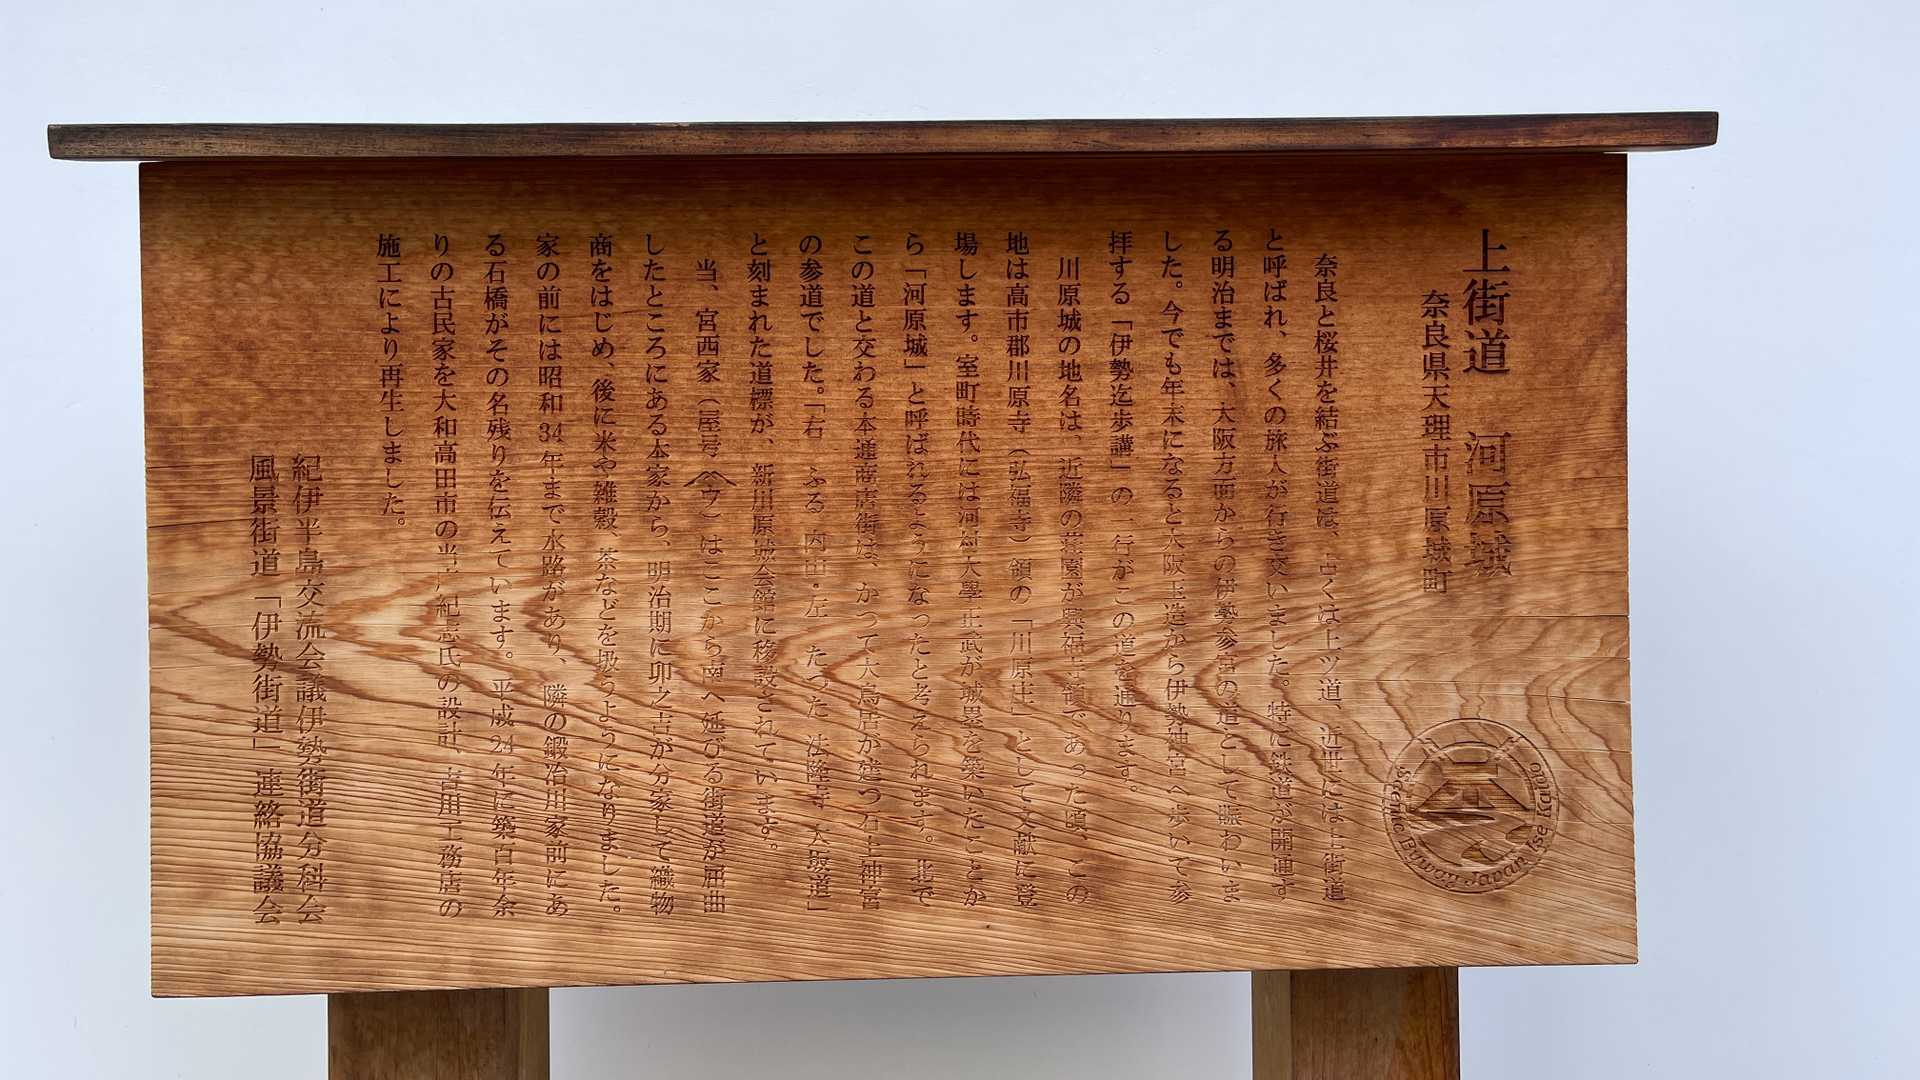 上街道　河原城
奈良県天理市川原城町
奈良と桜井を結ぶ街道は、古くは上ツ道、近世には上街道
と呼ばれ、多くの旅人が行き交いました。特に鉄道が開通す
る明治までは、大阪方面からの伊勢参宮の道として賑わいま
した。今でも年末になると大阪玉造から伊勢神宮へ歩いて参
拝する「伊勢迄歩講」の一行がこの道を通ります。
川原城の地名は、近隣の荘園が興福寺領であった頃、この
地は高市郡川原寺（弘福寺）領の「川原庄」として文献に登
場します。室町時代には河村大學正武が城塁を築いたことか
ら「河原城」と呼ばれるようになったと考えられます。北で
この道と交わる本通商店街は、かつて大鳥居が建つ石上神宮
の参道でした。「右　ふる　内山・左　たつた　法隆寺　大坂道」
と刻まれた道標が、新川原城会館に移設されています。
当、宮西家（屋号 ウ）はここから南へ延びる街道が屈曲
したところにある本家から、明治期に卯之吉が分家して織物
商をはじめ、後に米や雑穀、茶などを扱うようになりました。
家の前には昭和34年まで水路があり、隣の鍛冶川家前にあ
る石橋がその名残りを伝えています。平成24年に築百年余
りの古民家を大和高田市の当 紀志氏の設計、吉川工務店の
施工により再生しました。
紀伊半島交流会議伊勢街道分科会
風景街道「伊勢街道」連絡協議会
Scenic Byway Japan Ise Kaido